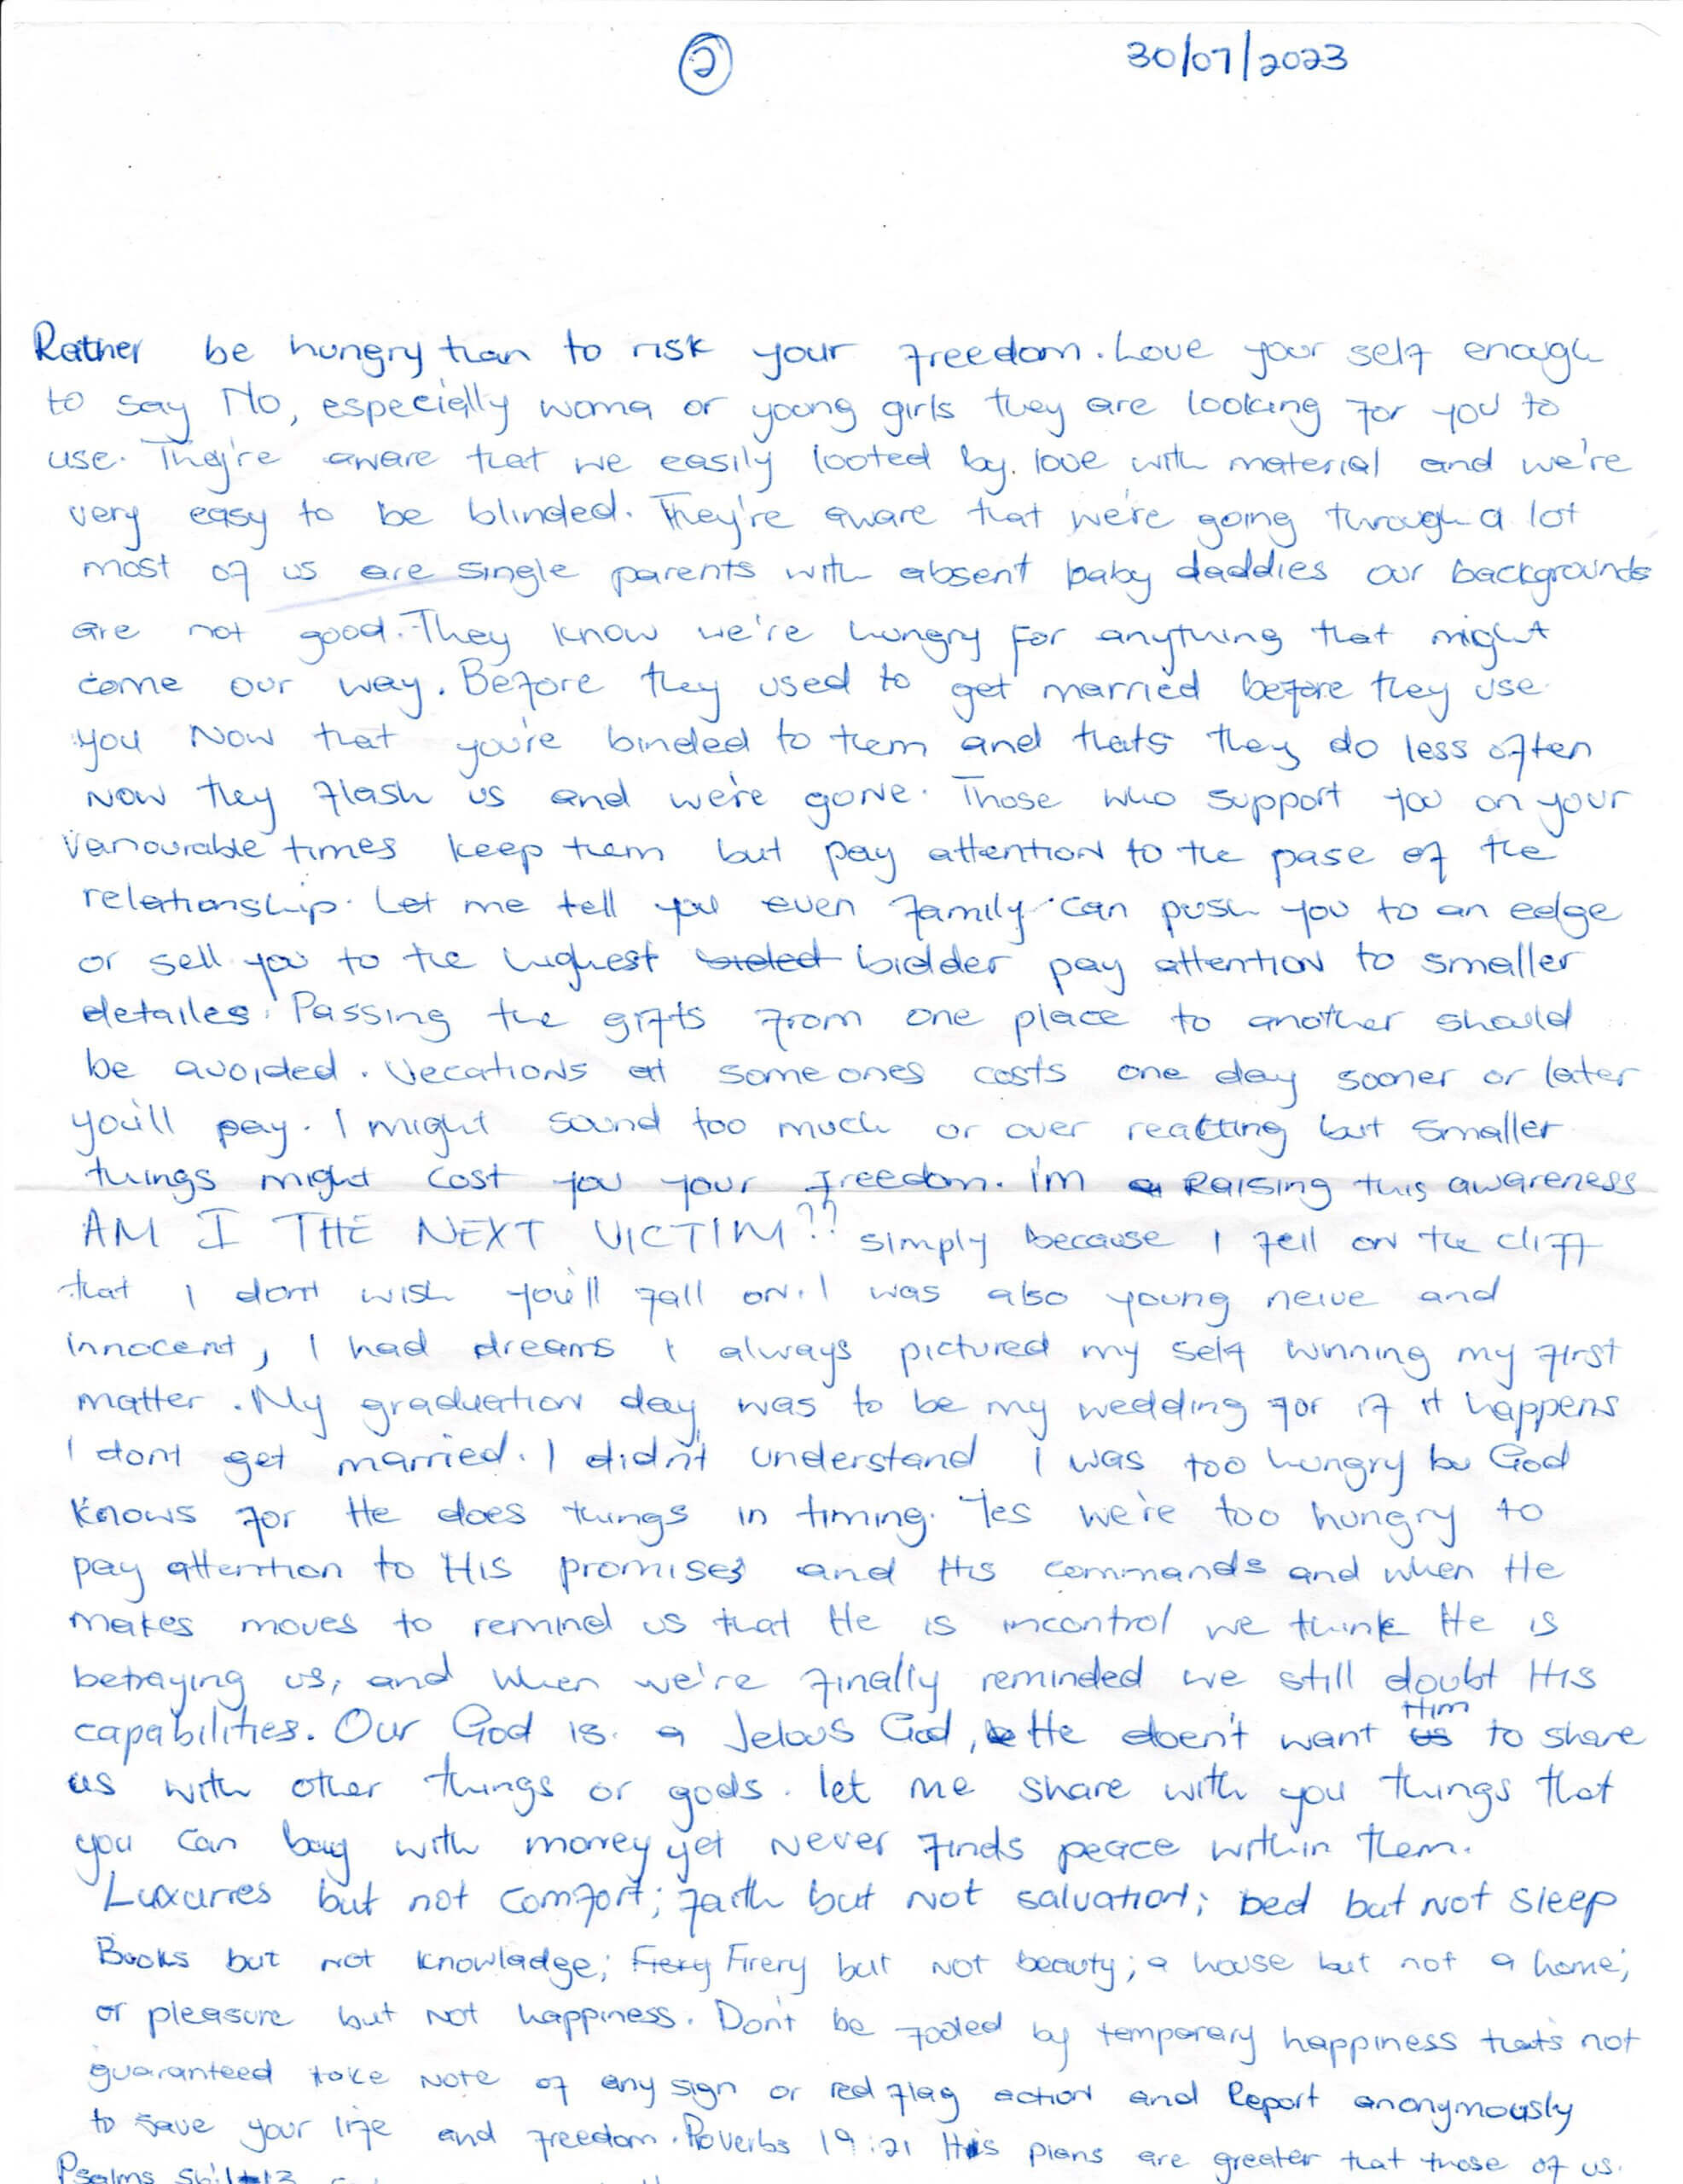 ② 30/07/2023
Rather be hungry than to risk your freedom. Love your self enough
to say No, especially woma or young girls they are looking for you to
use. They're aware that we easily looted by. love with material and we're
very easy to be blinded. They're aware that we're going through a lot
most of us are single parents with absent baby daddies our backgrounds
are not good. They know we're hungry for anything that might
come our way. Before they used to get married before they use
you Now that you're binded to them and thats they do less often
Now they flash us and we're gone. Those who support you on your
vanourable times keep them but pay attention to the pase of the
relationship. Let me tell you even family can push you to an edge
or sell you to the highest bided bidder pay attention to smaller
detailes. Passing the gifts from one place to another should
be avoided. Vecations at someones costs one day sooner or later
you'll pay. I might sound too much or over reacting but smaller
things might cost you your freedom. I'm a Raising this awareness
AM I THE NEXT VICTIM?? simply because I fell on the cliff
that I dont wish you'll fall on. I was also young neive and
innocent, I had dreams I always pictured my self winning my first
matter. My graduation day was to be my wedding for if it happens
I dont get married. I didn't understand I was too hungry bu God
Knows for He does things in timing. Yes we're too hungry to
pay attention to His promises and His commands and when He
makes moves to remind us that He is incontrol we think He is
betraying us, and when we're finally reminded we still doubt His
capabilities. Our God is a Jelous God, He doen't want us Him to share
us with other things or gods. let me share with you things that
you can buy with money yet never finds peace within them.
Luxuries but not comfort; faith but not salvation; bed but not sleep
Books but not knowladge; Fiery Firery but not beauty; a house but not a home;
or pleasure but not happiness. Don't be fooled by temporary happiness thats not
guaranteed take note of any sign or red flag action and Report anonymously
to save your life and freedom. Proverbs 19:21 His plans are greater that those of us.
Psalms